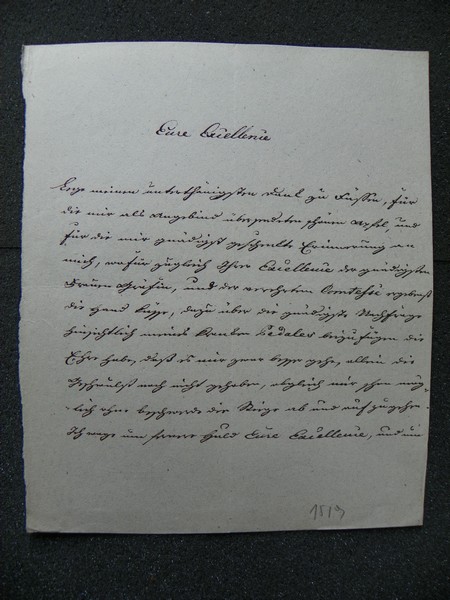 Eure Excellence
Lege meinen unterthänigsten Dank zu Füssen, für
die mir als Angebind übersendeten schönen Apfel, und
für die mir gnädigst geschenkte Erinnerung an
mich, wofür zugleich Ihrer Excellence der gnädigsten
Frauen Gräfin, und der verehrten Comtesse ergebenst
die Hand küsse, dazu über die gnädigste Nachfrage
hinsichtlich meines kranken Pedales beizufügen die
Ehre habe, daß es mir zwar besser gehe, allein die
Geschwulst noch nicht gehoben, obgleich mir schon mög-
lich ohne Beschwerde die Stiege ab und auf zugehen.
Ich wage um fernere Huld Eure Excellence, und